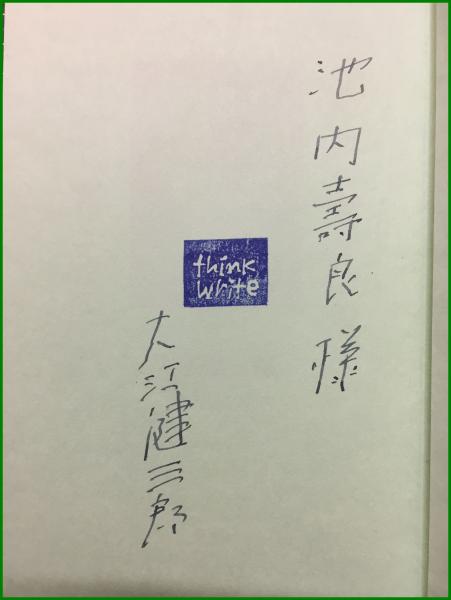 池内壽良様
think
white
大江健三郎